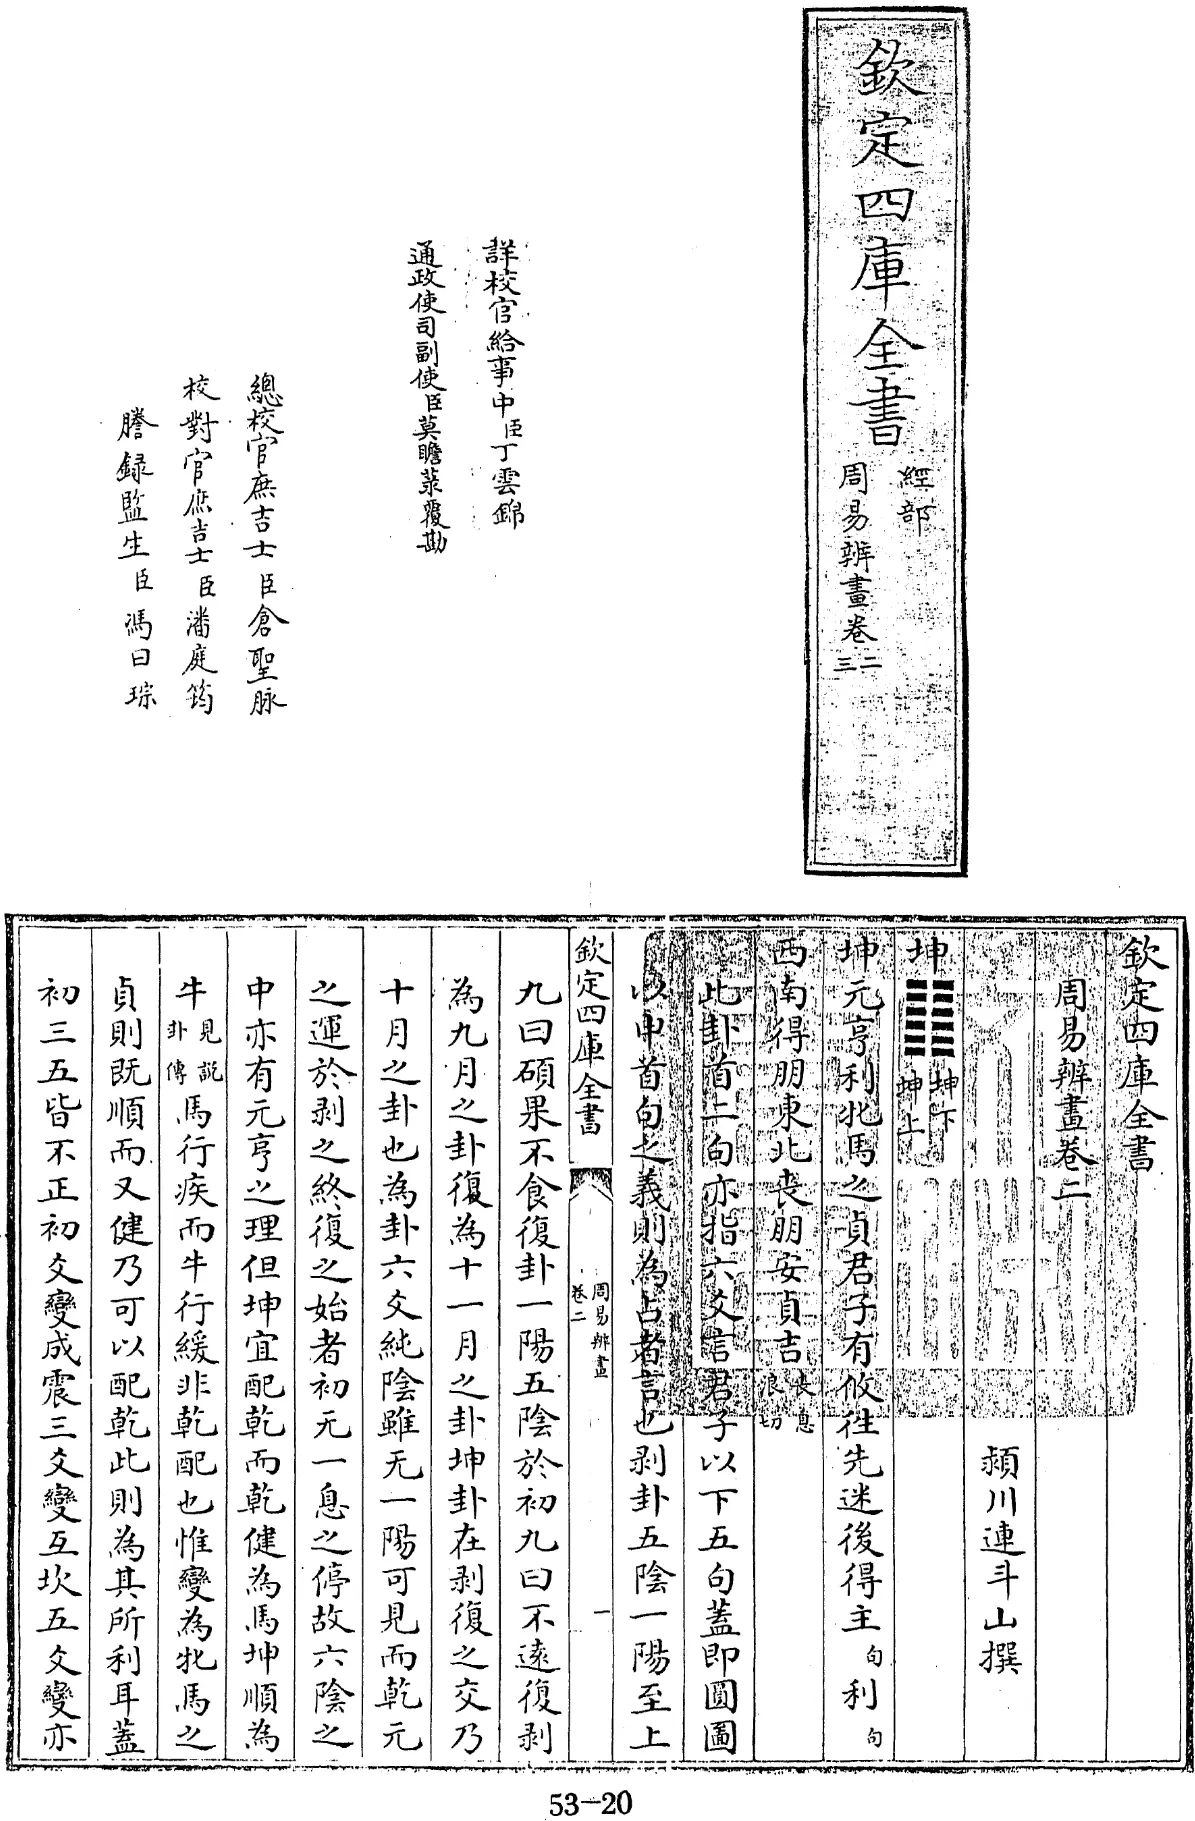 欽定四庫全書
經部
周易辨畫卷二三
詳校官給事中臣丁雲錦
通政使司副使臣莫瞻菉覆勘
總校官庶吉士臣倉聖脉
校對官庶吉士臣潘庭筠
謄録監生臣馮曰琮
欽定四庫全書
周易辨畫卷二
潁川連斗山撰
坤
坤下
坤上
坤元亨利牝馬之貞君子有攸往先迷後得主句利句
西南得朋東北丧朋安貞吉丧息浪切
此卦首二句亦指六爻言君子以下五句蓋即圓圖
以申首句之義則為占者言也剥卦五陰一陽至上
欽定四庫全書
周易辨畫
卷二
一
九曰碩果不食復卦一陽五陰於初九曰不遠復剥
為九月之卦復為十一月之卦坤卦在剥復之交乃
十月之卦也為卦六爻純陰雖无一陽可見而乾元
之運於剥之終復之始者初无一息之停故六陰之
中亦有元亨之理但坤宜配乾而乾健為馬坤順為
牛見說卦傳馬行疾而牛行緩非乾配也惟變為牝馬之
貞則既順而又健乃可以配乾此則為其所利耳蓋
初三五皆不正初爻變成震三爻變互坎五爻變亦
53-20